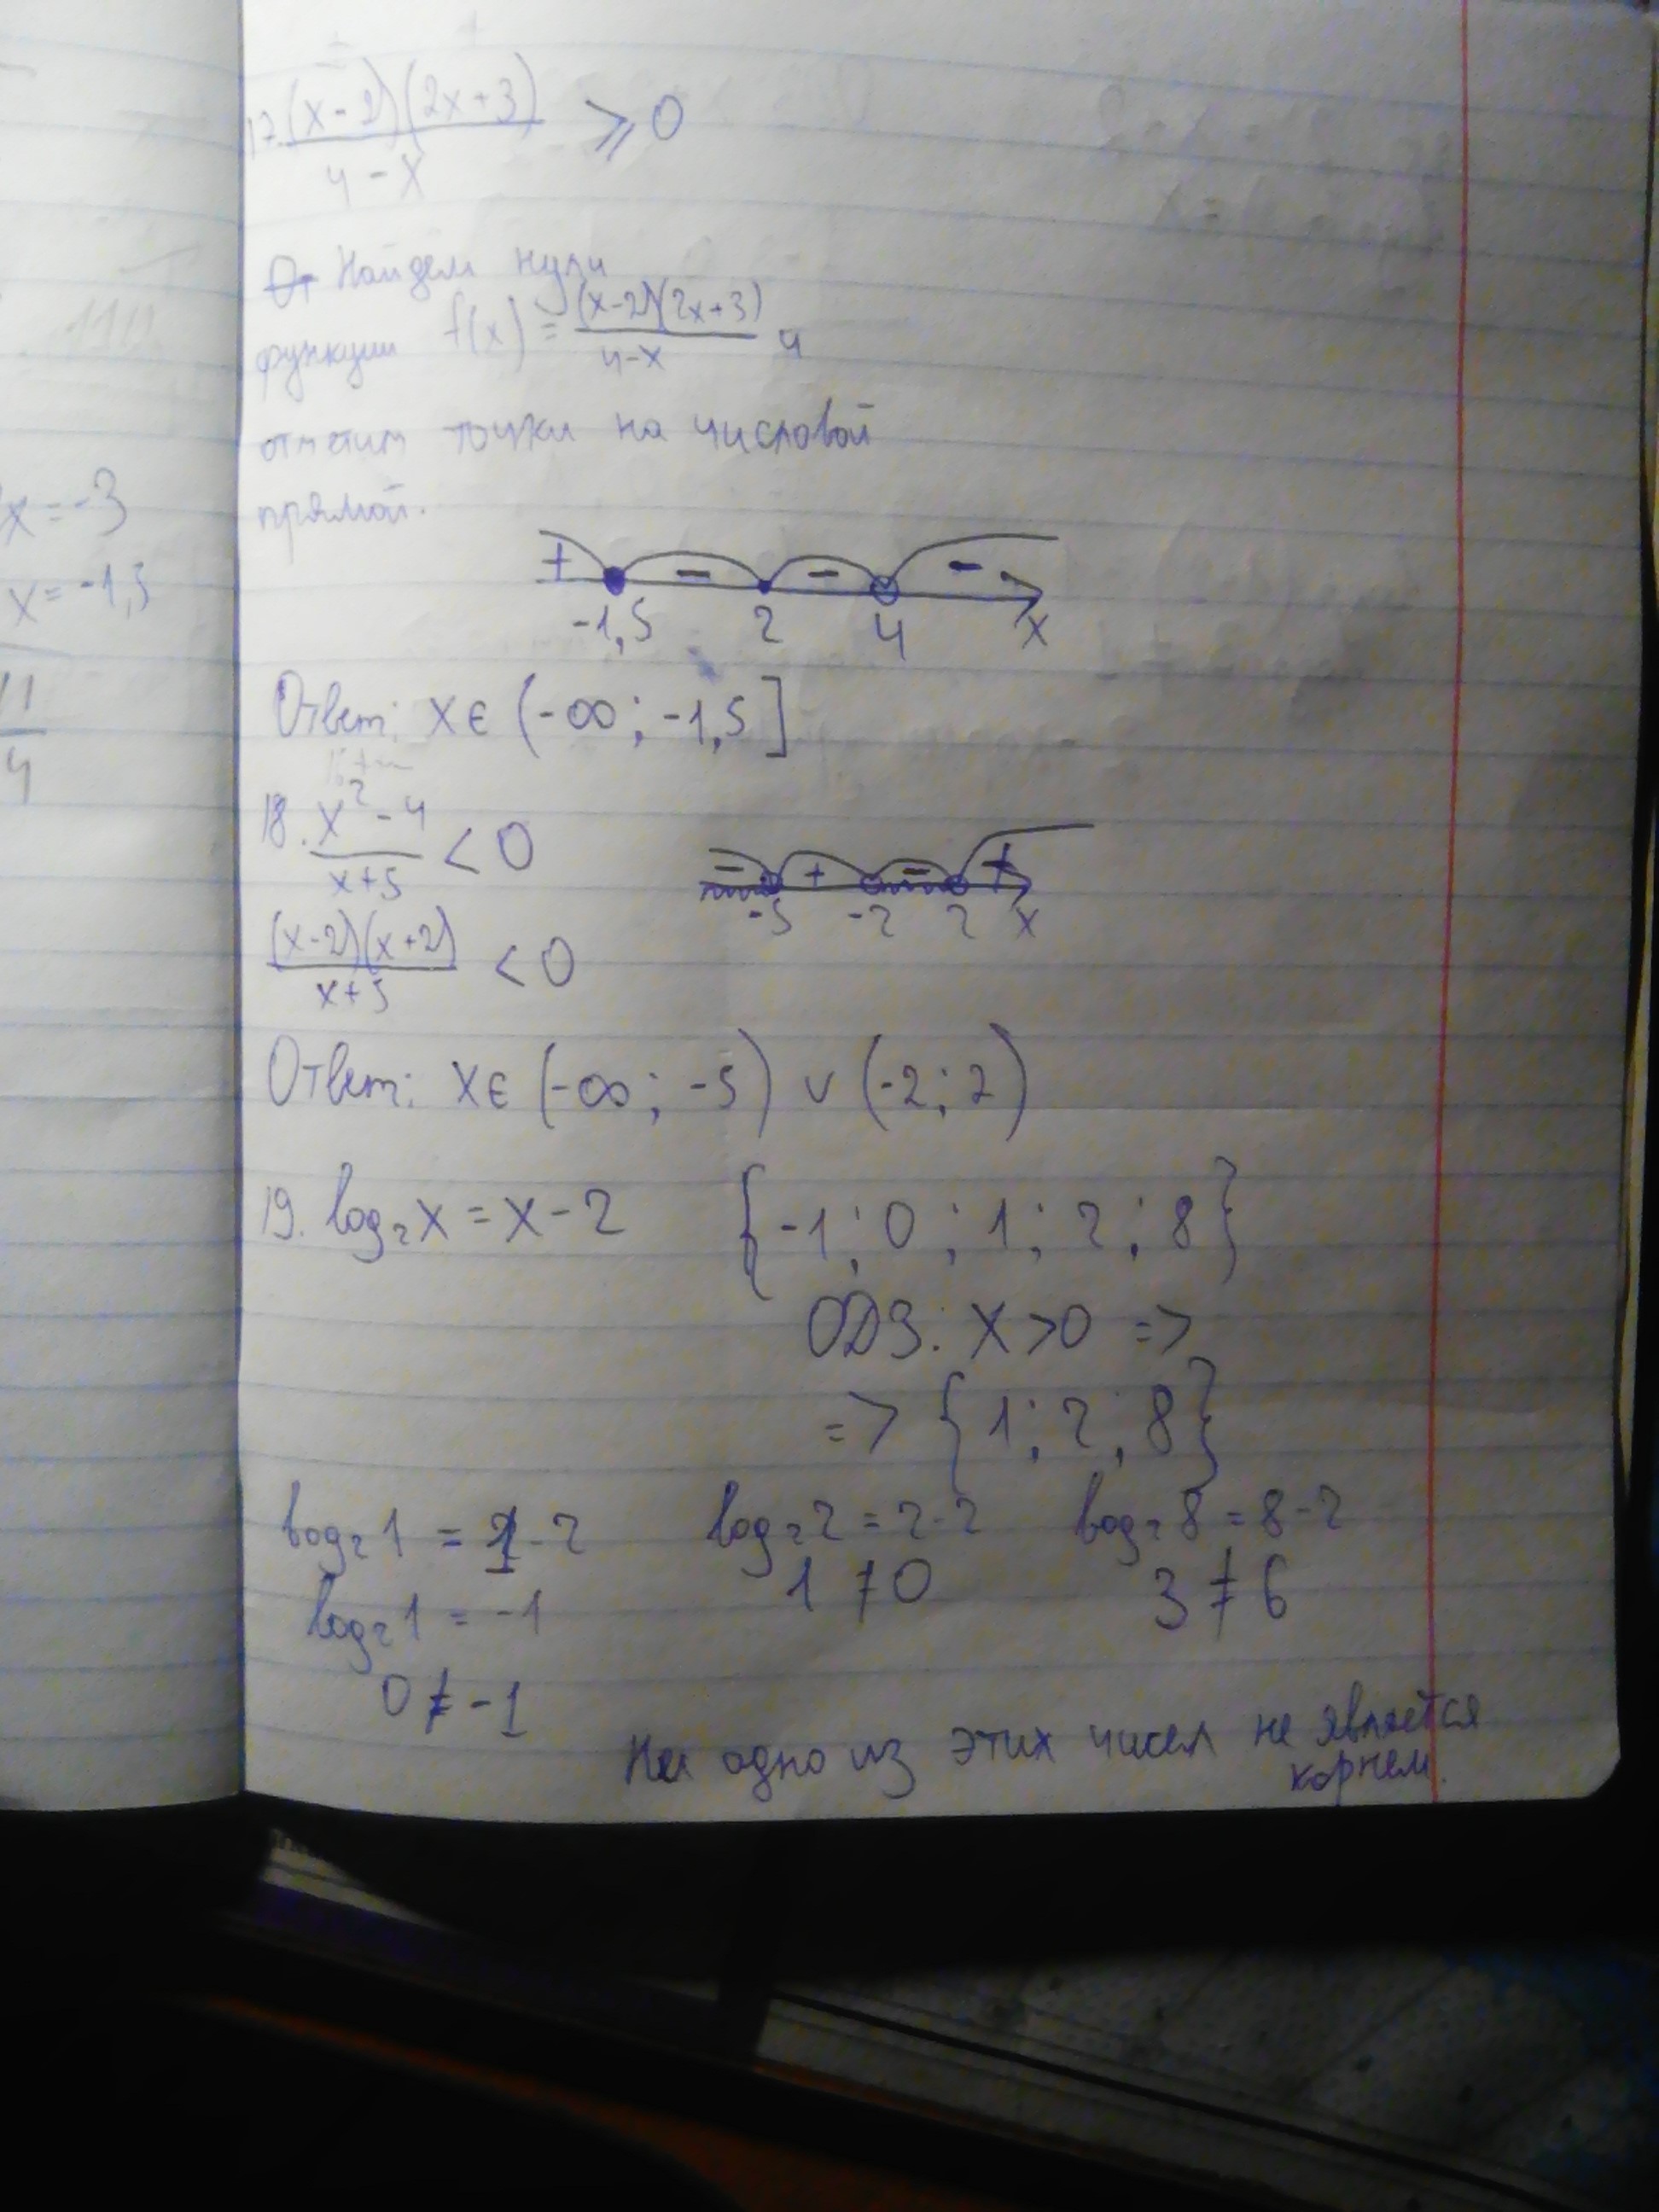 17. (x-2)(2x+3) / 4-x ⩾ 0
Найдем нули
функции f(x) = (x-2)(2x+3) / 4-x и
отметим точки на числовой
прямой.
+ - - -
-1,5 2 4 x
Ответ: x∈(-∞; -1,5]
18. x²-4 / x+5 < 0
- + - +
-5 -2 2 x
(x-2)(x+2) / x+5 < 0
Ответ: x∈(-∞; -5) ∪ (-2; 2)
19. log₂x = x-2 {-1; 0; 1; 2; 8}
ОДЗ: x>0 =>
=> {1; 2; 8}
log₂1 = 1-2 log₂2 = 2-2 log₂8 = 8-2
log₂1 = -1 1 ≠ 0 3 ≠ 6
0 ≠ -1
Ни одно из этих чисел не является
корнем.
x = -3
x = -1,5
11
4